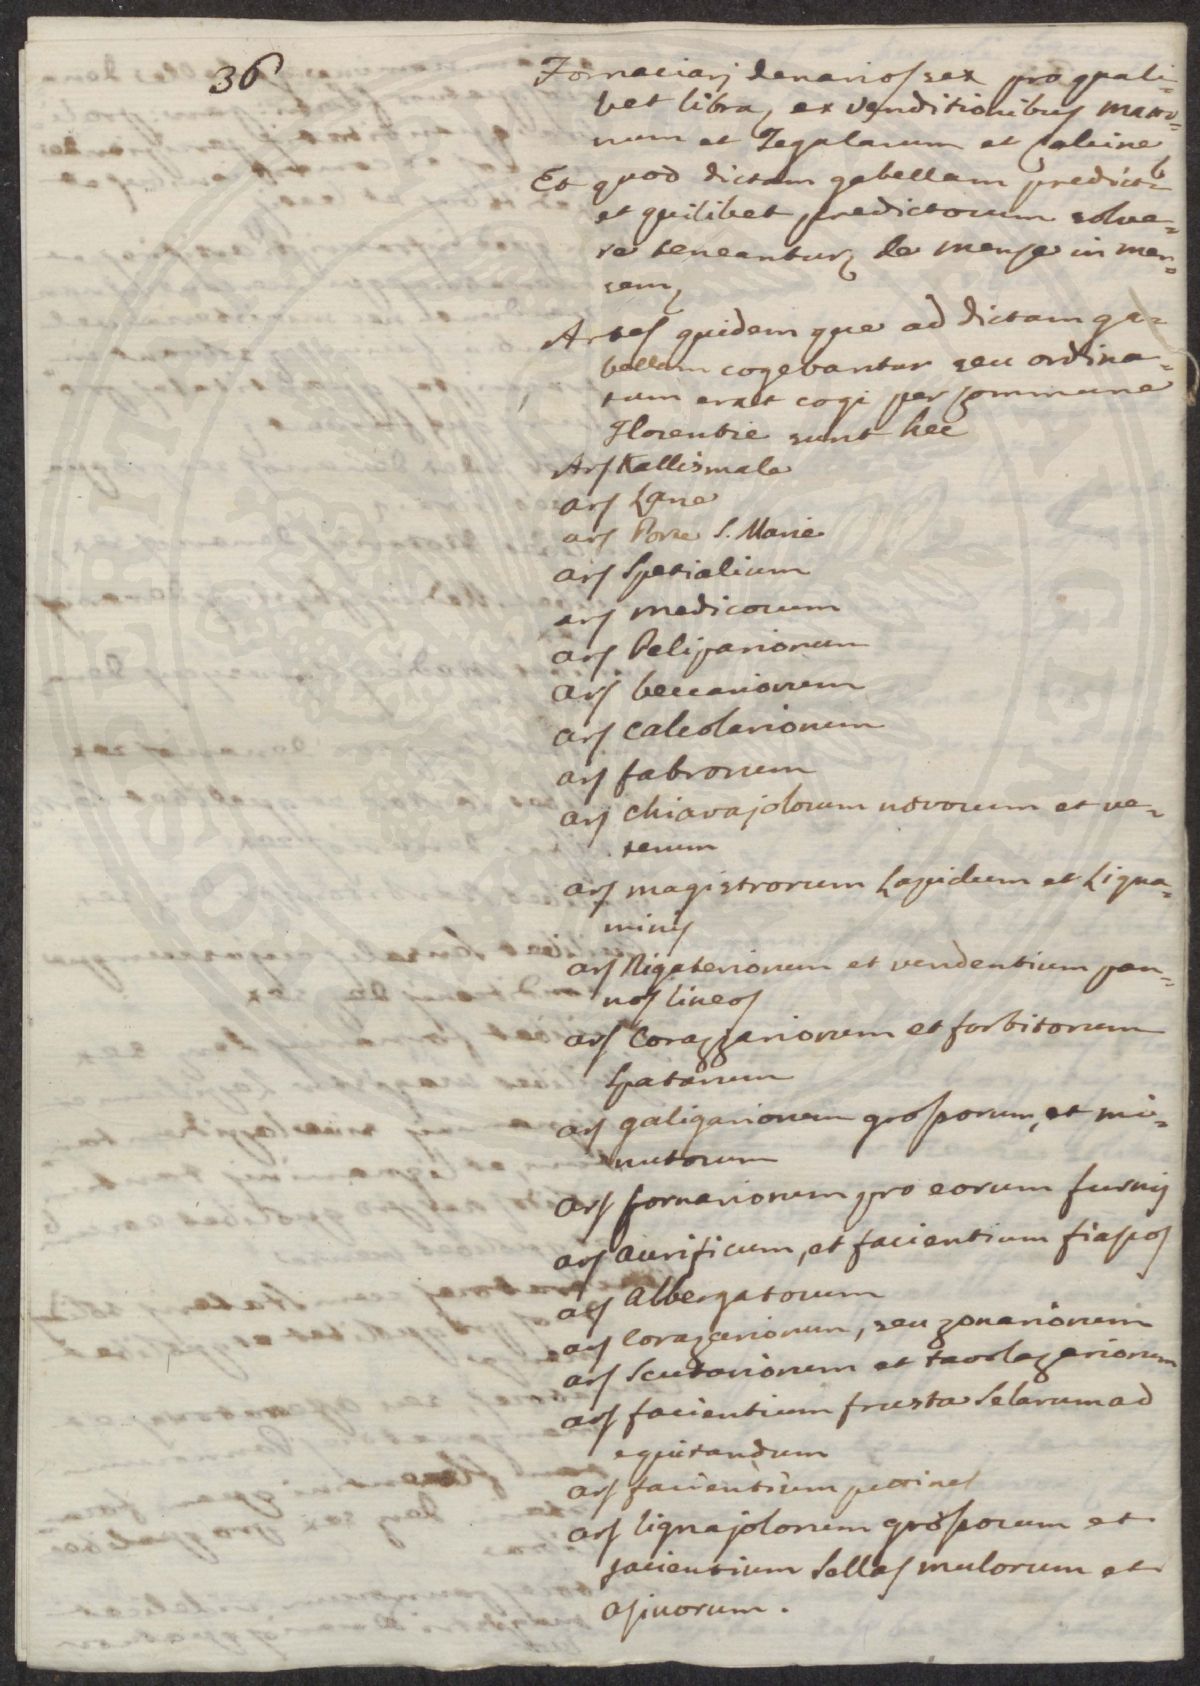 36
Fornaciarj denarios sex pro quali=
bet libra, ex venditionibus matto=
num et Tegularum et Calcine
Et quod dictam gabellam predicti
et quilibet predictorum solve=
re teneantur de mense in men=
sem,
Artes quidem que ad dictam ga=
bellam cogebantur seu ordina=
tum erat cogi per Commune
Florentie sunt hec
Ars Kallismale
ars Lane
ars Porte S. Marie
ars Spetialium
ars medicorum
ars Pelipariorum
ars beccariorum
ars calcolariorum
ars fabrorum
ars chiavajolorum novorum et ve=
terum
ars magistrorum Lapidum et Ligna=
minis
ars Rigateriorum et vendentium pan=
nos lineos
ars Corazzariorum et forbitorum
spatarum
ars galigariorum grossorum, et mi=
nutorum
ars fornariorum pro eorum furnis
ars aurificum, et facientium fiascos
ars Albergatorum
ars Corazariorum, seu zonariorum
ars Scutariorum et tavolazariorum
ars facientium frusta Selarum ad
equitandum
ars facientium petines
ars lignajolorum grossorum et
facientium Sellas mulorum et
asinorum.